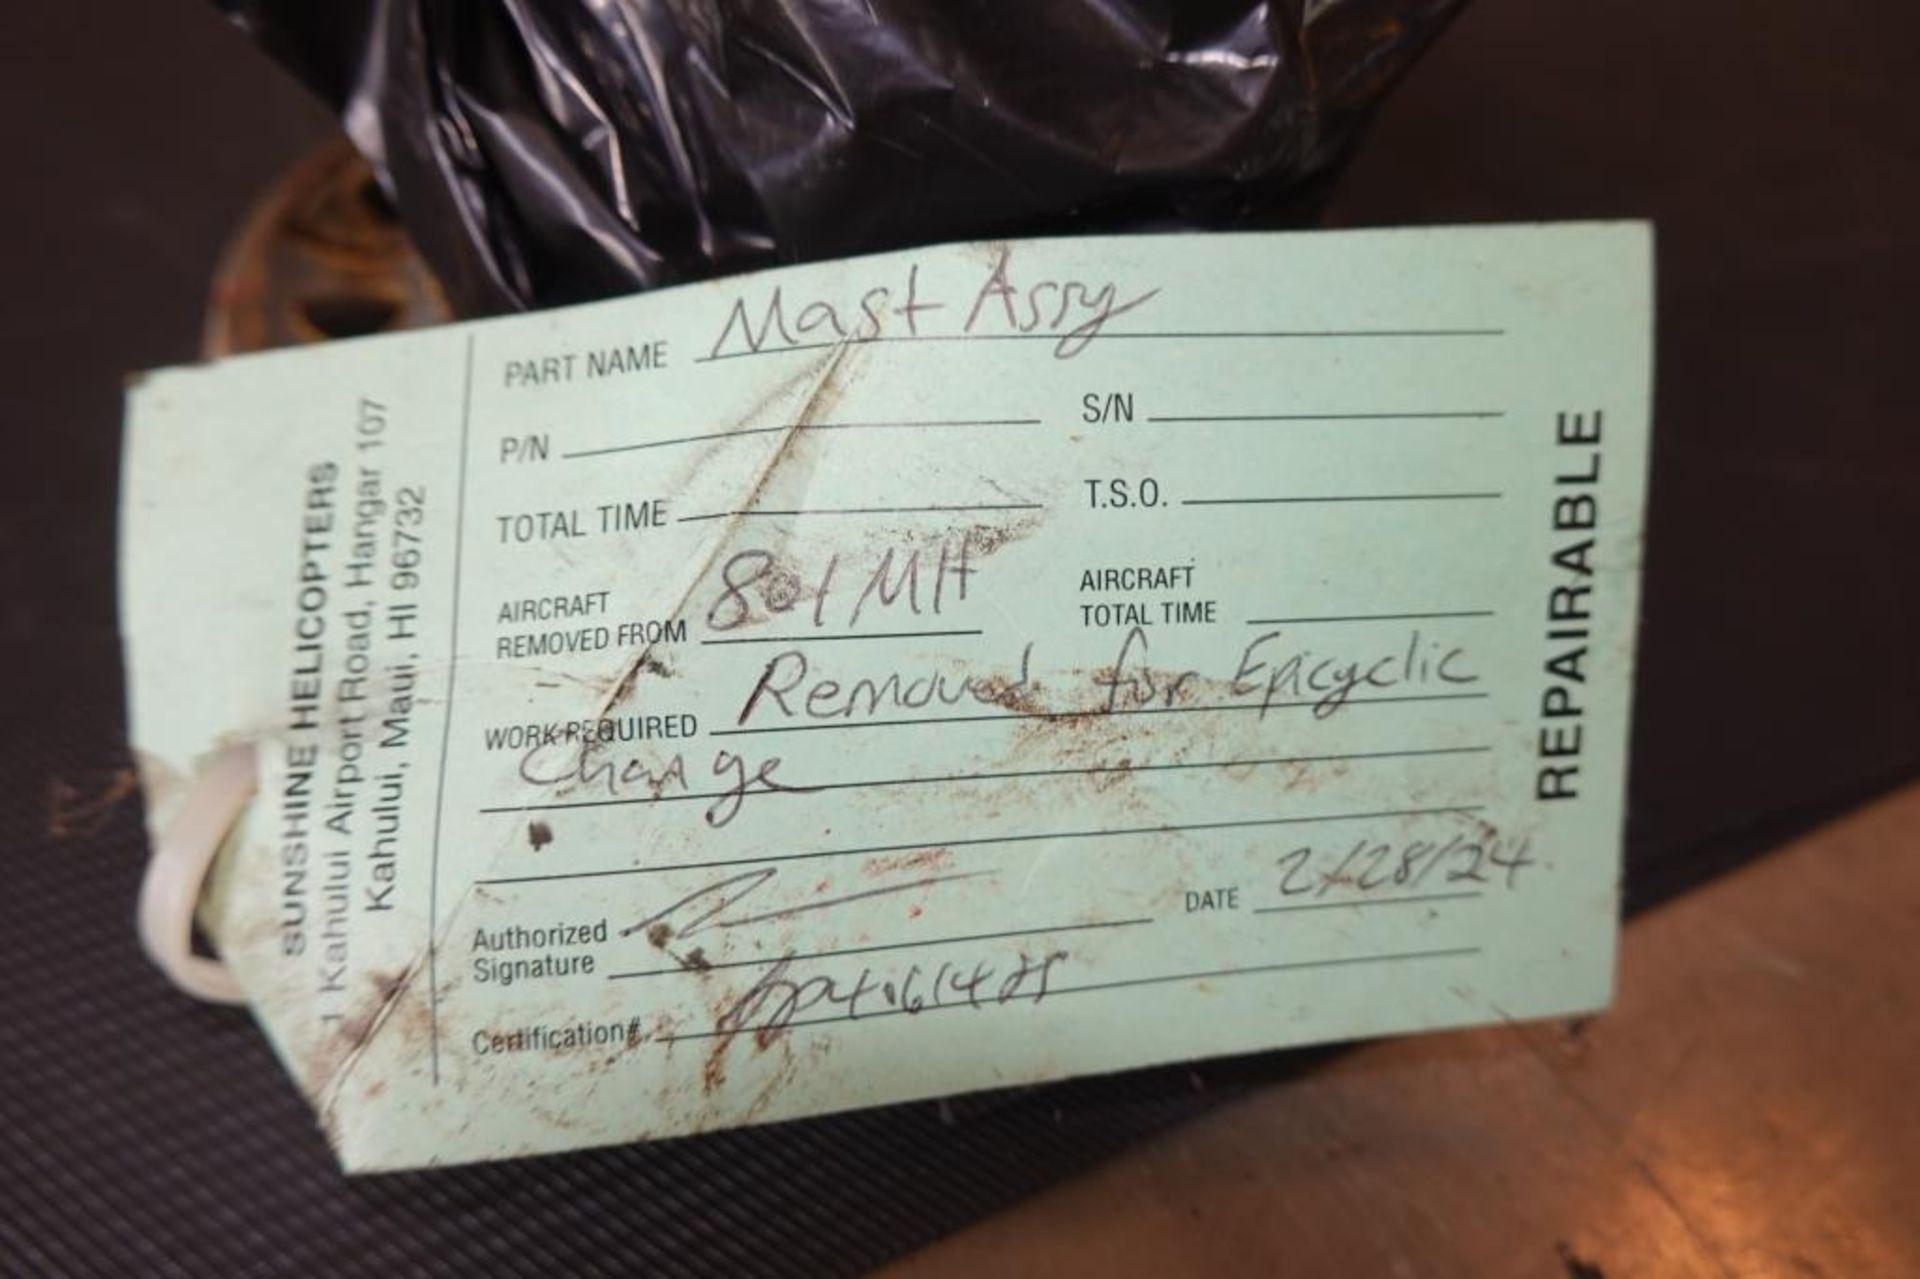 SUNSHINE HELICOPTERS
1 Kahului Airport Road, Hangar 107
Kahului, Maui, HI 96732
PART NAME Mast Assy
P/N S/N
TOTAL TIME T.S.O.
AIRCRAFT REMOVED FROM 801MH AIRCRAFT TOTAL TIME
WORK REQUIRED Removed for Epicyclic
Change
Authorized Signature DATE 2/28/24
Certification#
REPAIRABLE